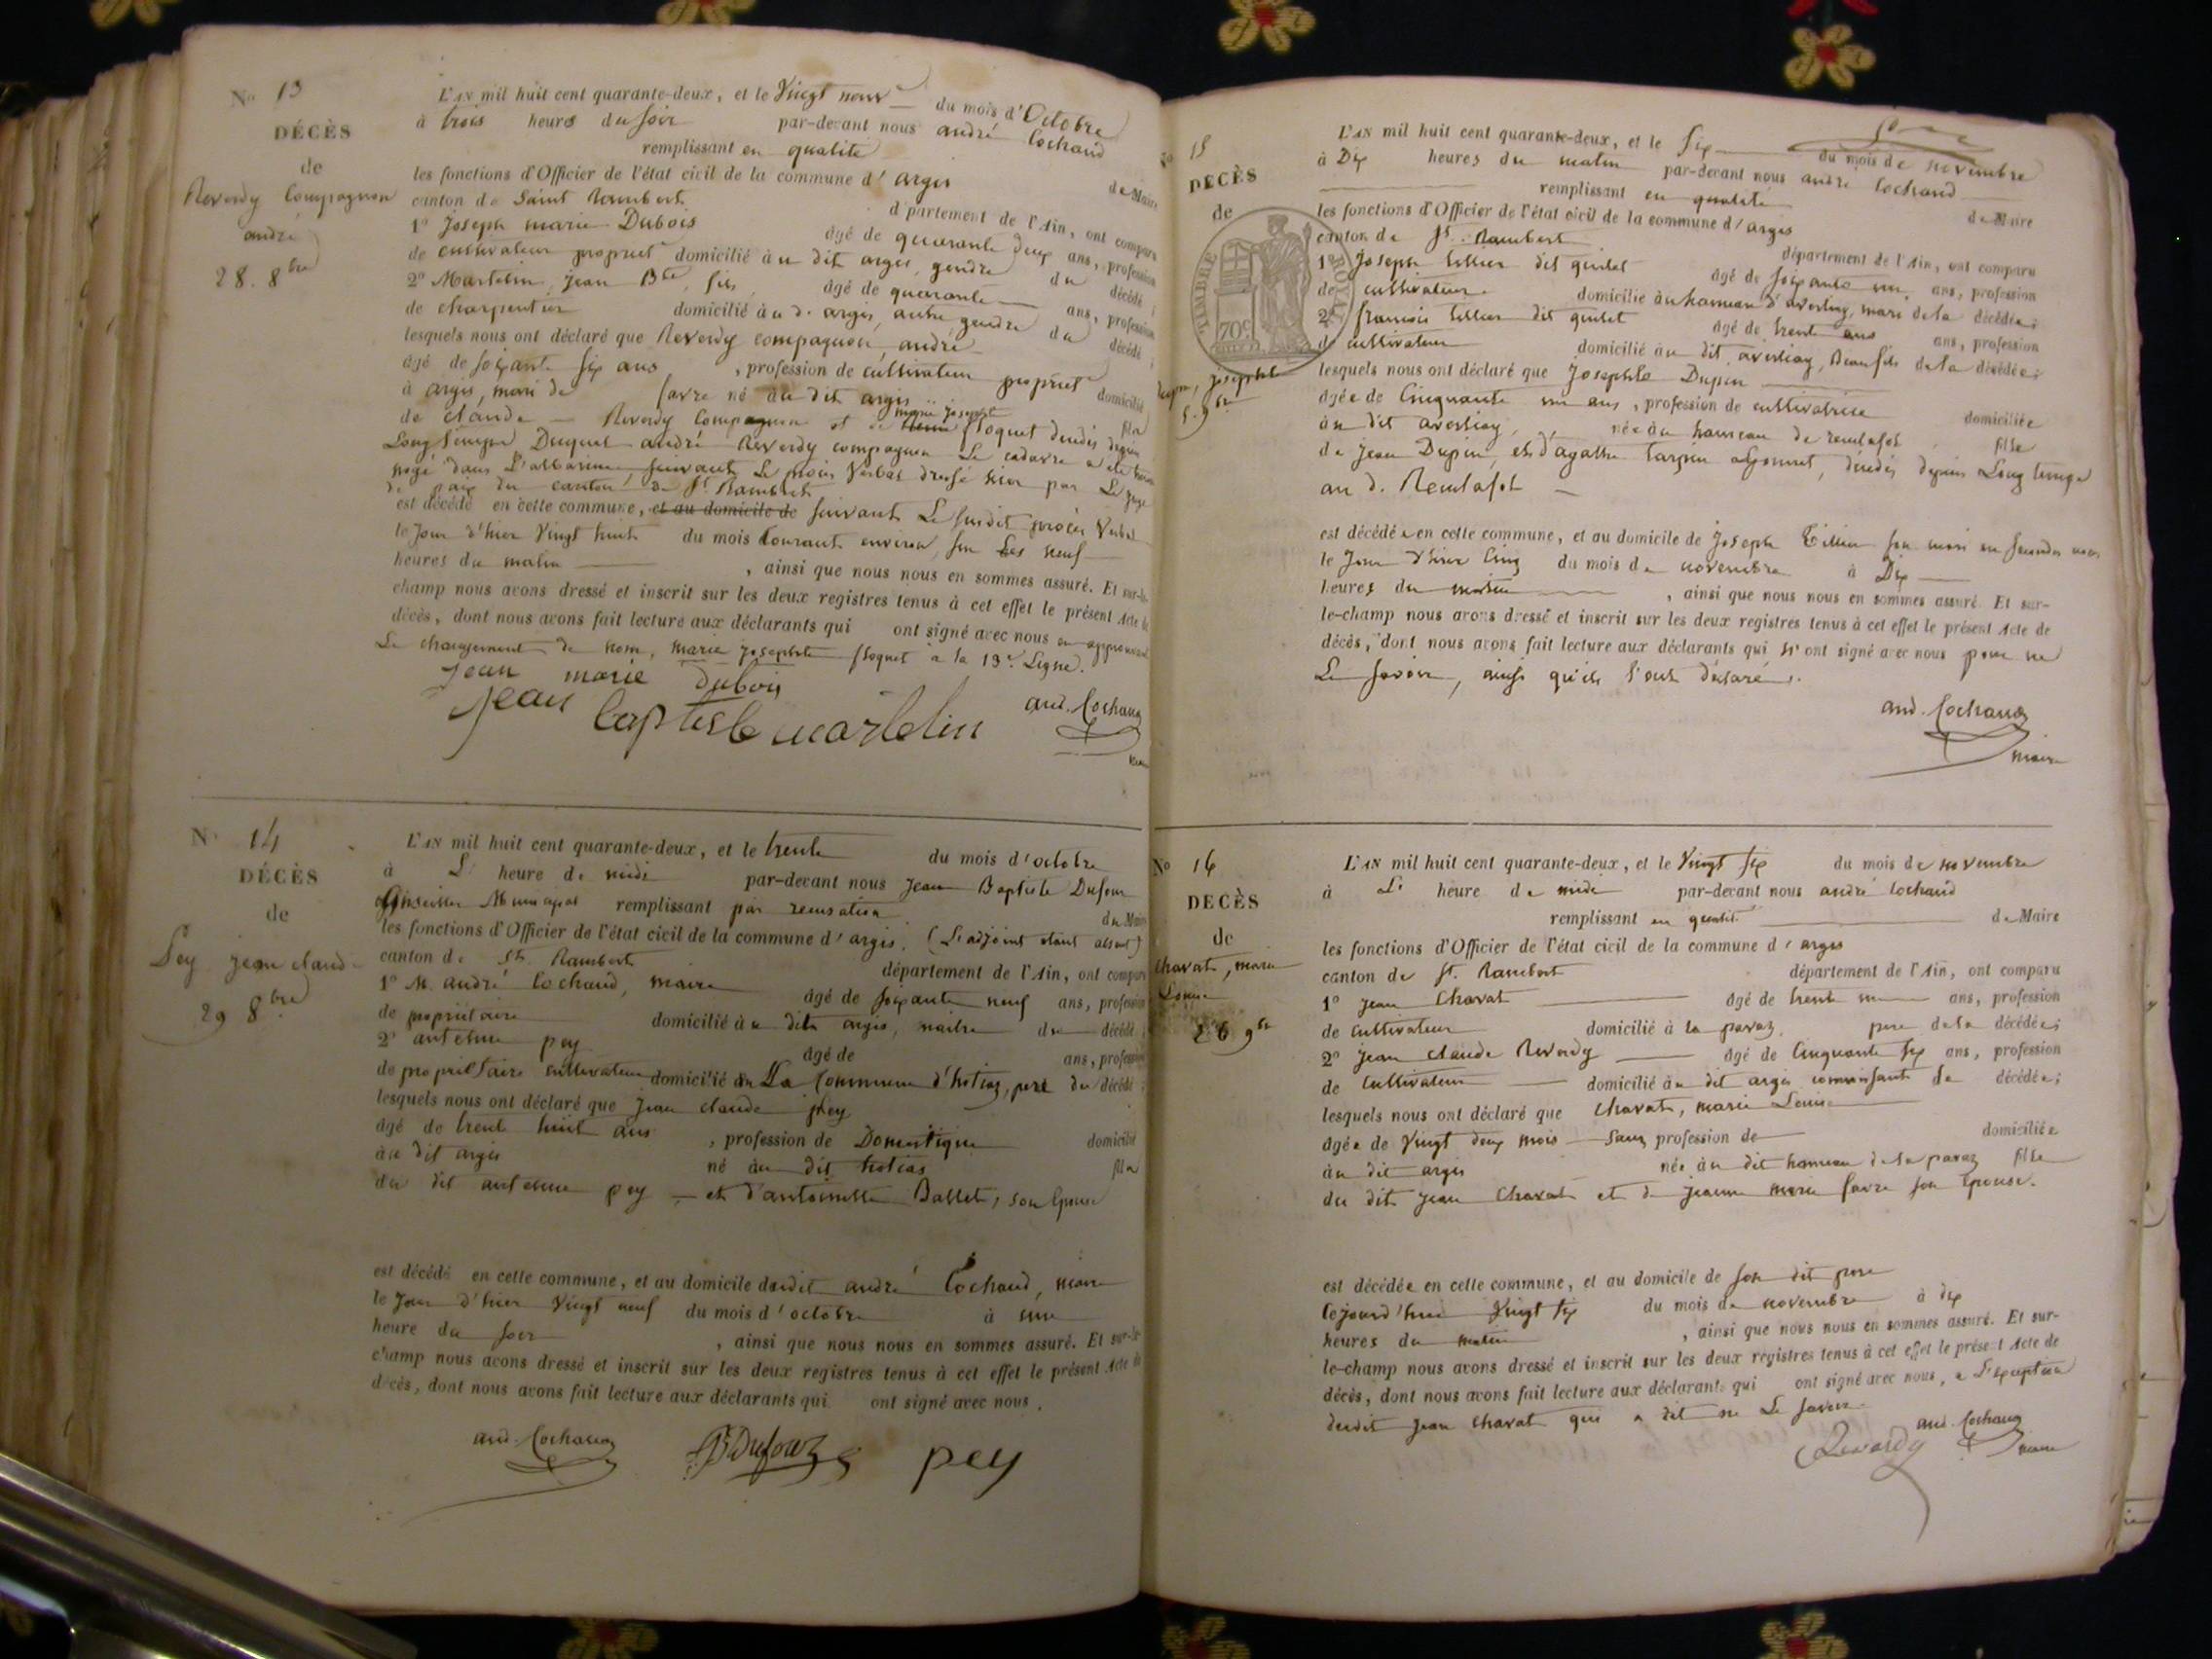 No 13
DÉCÈS
de
Reverdy Compagnon
andré
28. 8bre
L'AN mil huit cent quarante-deux, et le Vingt neuf du mois d'Octobre
à trois heures du soir par-devant nous andré Cochand
remplissant en qualité de Maire
les fonctions d'Officier de l'état civil de la commune d'argis
canton de Saint Rambert département de l'Ain, ont comparu
1º Joseph marie Dubois âgé de quarante deux ans, profession
de cultivateur propriet domicilié à u dit argis, gendre du décédé ;
2º Martelin, jean Bte, fils, âgé de quarante ans, profession
de charpentier domicilié à u d. argis, autre gendre du décédé ;
lesquels nous ont déclaré que Reverdy compagnon, andré
âgé de soixante six ans, profession de cultivateur propriet domicilié
à argis, mari de favre né à u dit argis fils
de claude Reverdy Compagnon et de marie josephte floquet décédés depuis
Long temps Duquel andré Reverdy compagnon Le cadavre a été
noyé dans L'albarine, suivant Le procès Verbal dressé hier par Le juge
de paix du canton de St Rambert
est décédé en cette commune, et au domicile de suivant Le susdit procès Verbal
le jour d'hier Vingt huit du mois Courant environ sur Les neuf
heures du matin, ainsi que nous nous en sommes assuré. Et sur-le-
champ nous avons dressé et inscrit sur les deux registres tenus à cet effet le présent Acte de
décès, dont nous avons fait lecture aux déclarants qui ont signé avec nous en approuvant
Le changement de nom, marie josephte floquet à la 13e Ligne.
jean marie dubois
jean baptiste martelin
and. Cochand
maire
No 14
DÉCÈS
de
Pey jean claude
29 8bre
L'AN mil huit cent quarante-deux, et le trente du mois d'octobre
à L' heure de midi par-devant nous Jean Baptiste Dufour
Conseiller Municipal remplissant par du Maire
les fonctions d'Officier de l'état civil de la commune d'argis. (L'adjoint étant absent)
canton de St. Rambert département de l'Ain, ont comparu
1º M. andré Cochand, maire âgé de soixante neuf ans, profession
de propriétaire domicilié à u dit argis, maitre du décédé ;
2º antelme pey âgé de ans, profession
de propriétaire cultivateur domicilié en La Commune d'hotiaz, père du décédé ;
lesquels nous ont déclaré que Jean claude pey
âgé de trent huit ans, profession de Domestique domicilié
à u dit argis né à u dit hotias fils
du dit antelme pey et d'antoinette Ballet, son épouse
est décédé en cette commune, et au domicile dudit andré Cochand, maire
le jour d'hier Vingt neuf du mois d'octobre à une
heure du soir, ainsi que nous nous en sommes assuré. Et sur-le-
champ nous avons dressé et inscrit sur les deux registres tenus à cet effet le présent Acte de
décès, dont nous avons fait lecture aux déclarants qui ont signé avec nous.
and. Cochand
JB Dufour
pey
15
DÉCÈS
de
TIMBRE ROYAL
70c
Dupin, josephte
5. 9bre
L'AN mil huit cent quarante-deux, et le six du mois de novembre
à Dix heures du matin par-devant nous andré Cochand
remplissant en qualité de Maire
les fonctions d'Officier de l'état civil de la commune d'argis
canton de St. Rambert département de l'Ain, ont comparu
1º joseph tillier dit guilet âgé de soixante un ans, profession
de cultivateur domicilié à u hameau d'averliaz, mari de la décédée ;
2º francois tillier dit guilet âgé de trente ans ans, profession
de cultivateur domicilié à u dit averliaz, Beau fils de la décédée ;
lesquels nous ont déclaré que Josephte Dupin
âgée de Cinquante un ans, profession de cultivatrice domiciliée
à u dit averliaz, née à u hameau de reculafol fille
de jean Dupin, et d'agathe tarpin décédés depuis Long temps
au d. Reculafol
est décédée en cette commune, et au domicile de joseph Tillier son mari en secondes noces
le jour d'hier Cinq du mois de novembre à Dix
heures du matin, ainsi que nous nous en sommes assuré. Et sur-
le-champ nous avons dressé et inscrit sur les deux registres tenus à cet effet le présent Acte de
décès, dont nous avons fait lecture aux déclarants qui n'ont signé avec nous pour ne
Le savoir, ainsi qu'ils l'ont déclaré.
and. Cochand
maire
No 16
DÉCÈS
de
Chavat, marie
Louise
26 9bre
L'AN mil huit cent quarante-deux, et le Vingt six du mois de novembre
à L' heure de midi par-devant nous andré Cochand
remplissant en qualité de Maire
les fonctions d'Officier de l'état civil de la commune d'argis
canton de St. Rambert département de l'Ain, ont comparu
1º jean Chavat âgé de trente un ans, profession
de cultivateur domicilié à la pavaz, père de la décédée ;
2º jean claude Reverdy âgé de Cinquante six ans, profession
de Cultivateur domicilié à u dit argis connaissant la décédée ;
lesquels nous ont déclaré que Chavat, marie Louise
âgée de Vingt deux mois Sans profession de domiciliée
à u dit argis née à u dit hameau de la pavaz fille
du dit jean Chavat et de jeanne marie favre son épouse.
est décédée en cette commune, et au domicile de son dit père
Cejourd'hui Vingt six du mois de novembre à dix
heures du matin, ainsi que nous nous en sommes assuré. Et sur-
le-champ nous avons dressé et inscrit sur les deux registres tenus à cet effet le présent Acte de
décès, dont nous avons fait lecture aux déclarants qui ont signé avec nous, a L'exception
dudit jean Chavat qui a dit ne Le savoir.
Reverdy
and. Cochand
maire